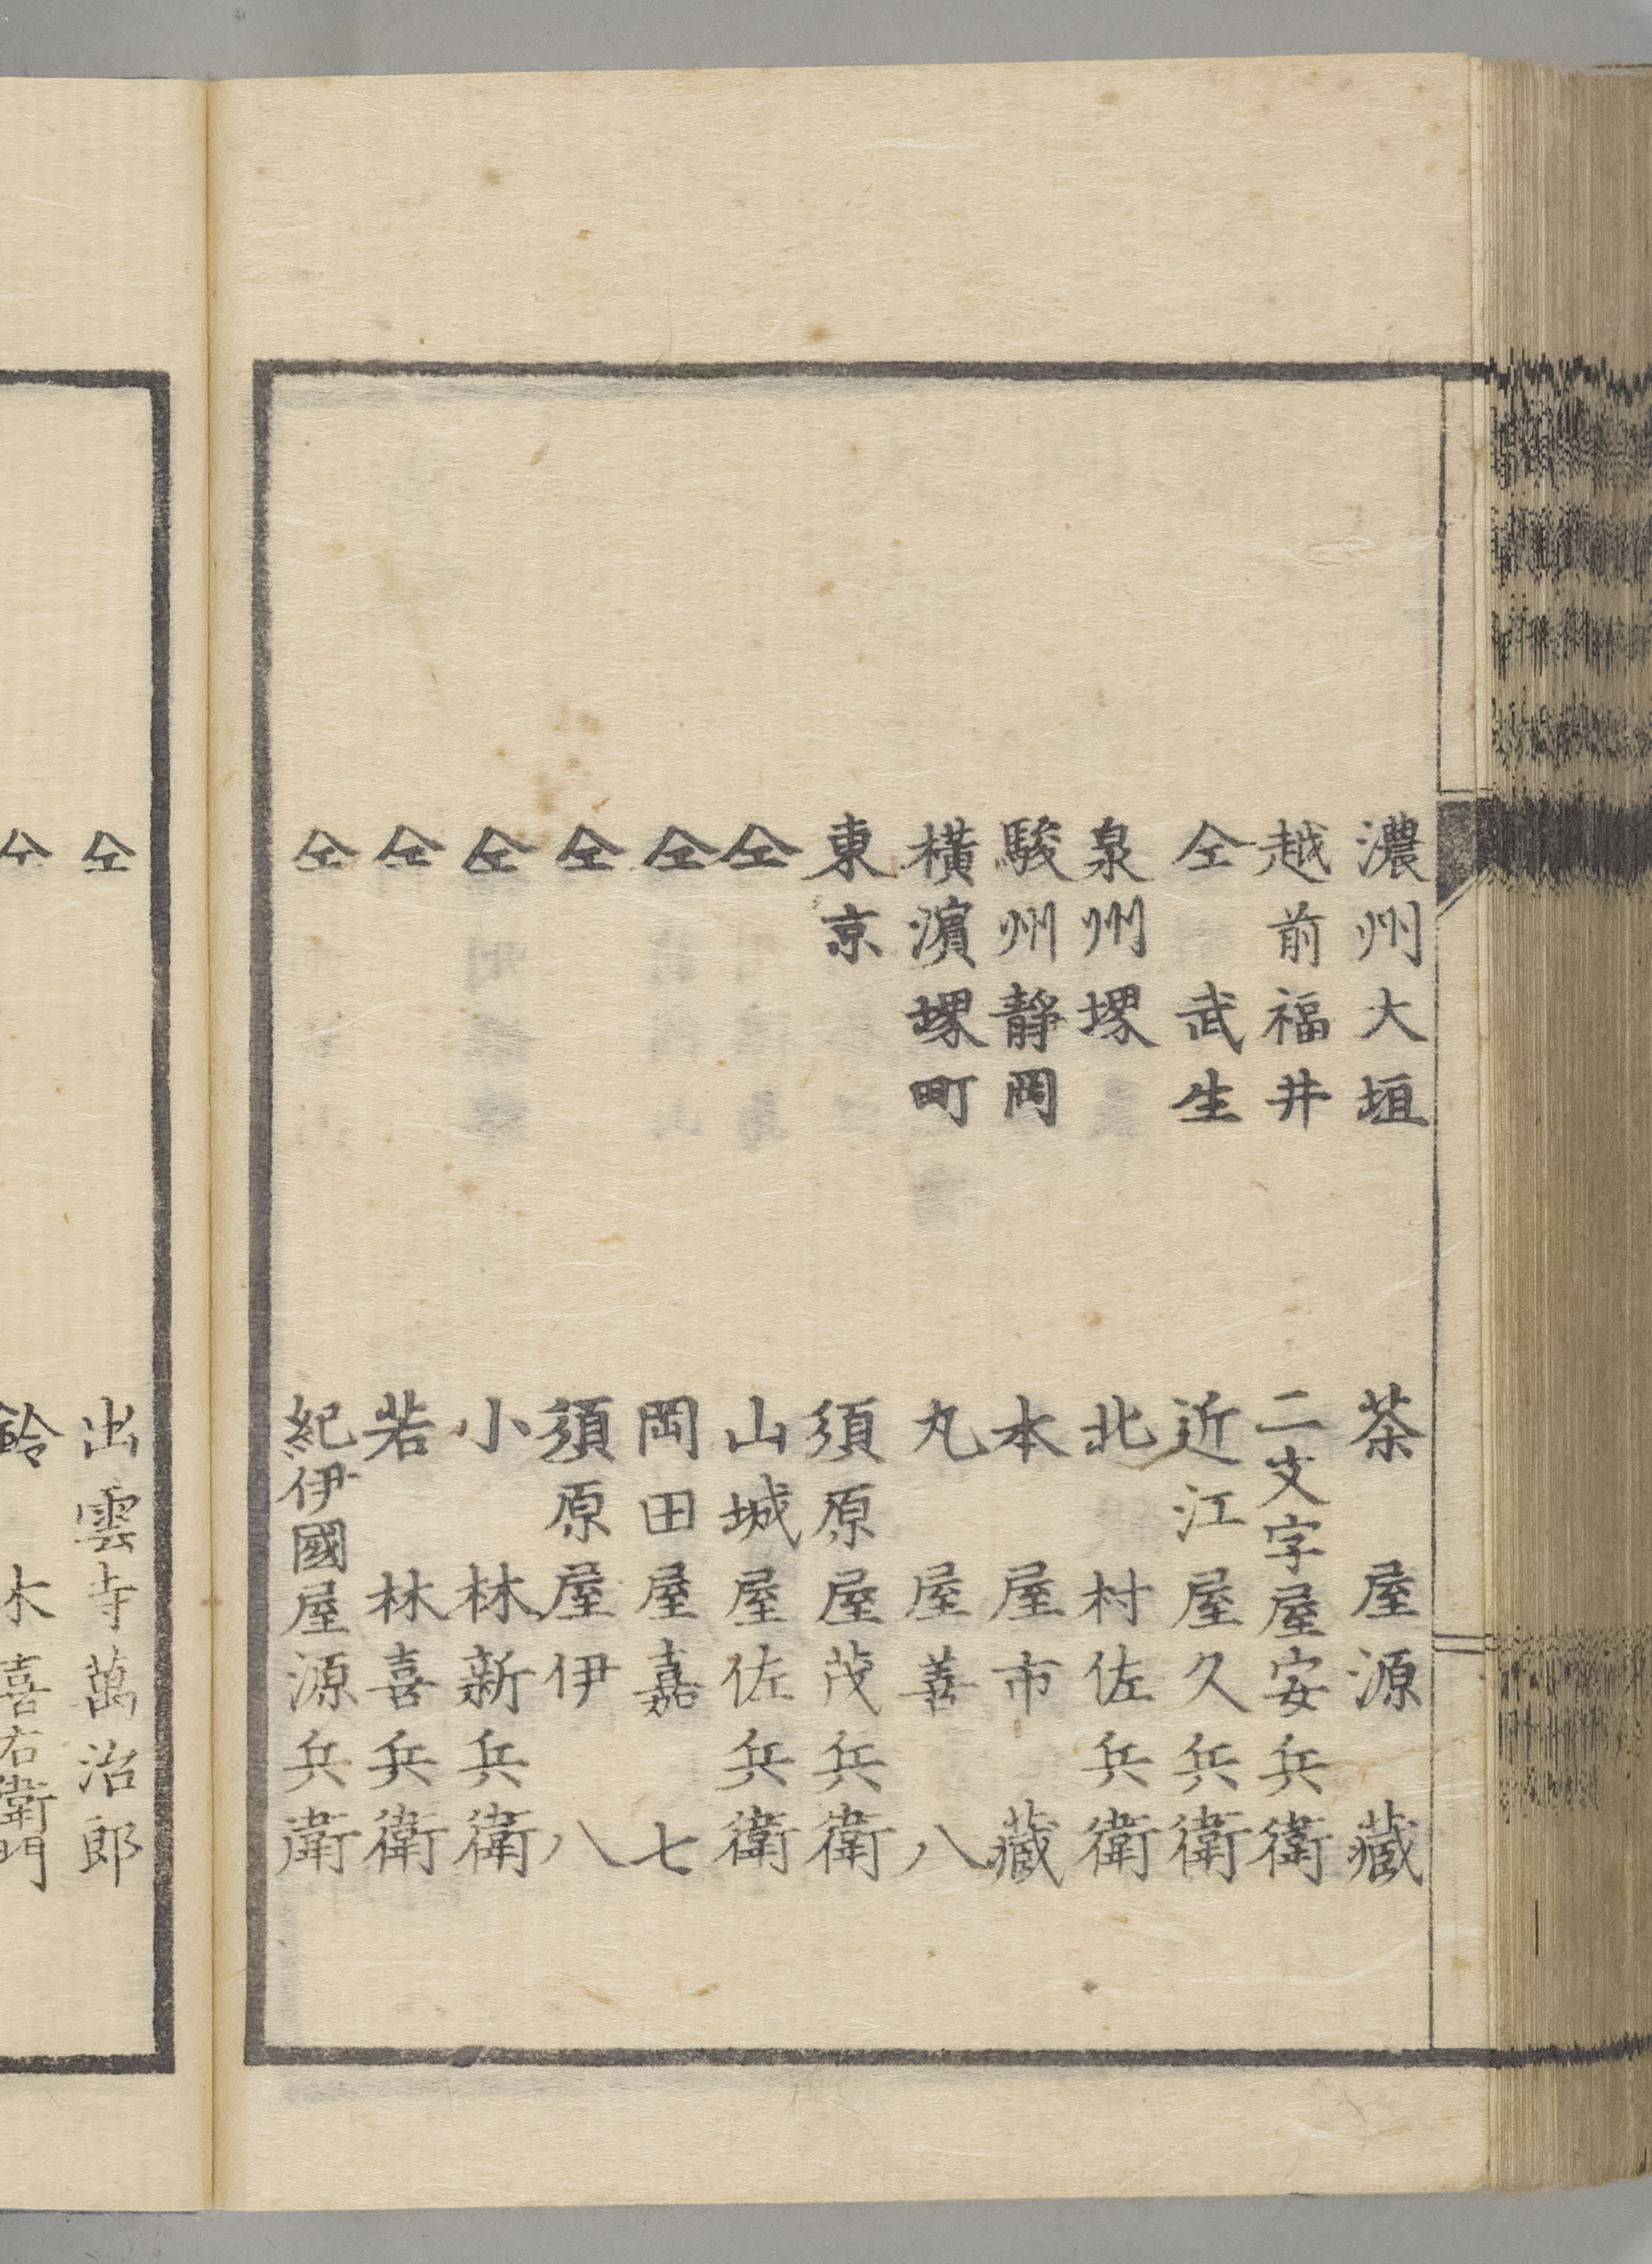 濃州大垣 茶屋源藏
越前福井 二文字屋安兵衛
仝 武生 近江屋久兵衛
泉州堺 北村佐兵衛
駿州靜岡 本屋市藏
橫濵堺町 丸屋善八
東京 須原屋茂兵衛
仝 山城屋佐兵衛
仝 岡田屋嘉七
仝 須原屋伊八
仝 小林新兵衛
仝 若林喜兵衛
仝 紀伊國屋源兵衛
仝 出雲寺萬治郎
仝 鈴木喜右衛門